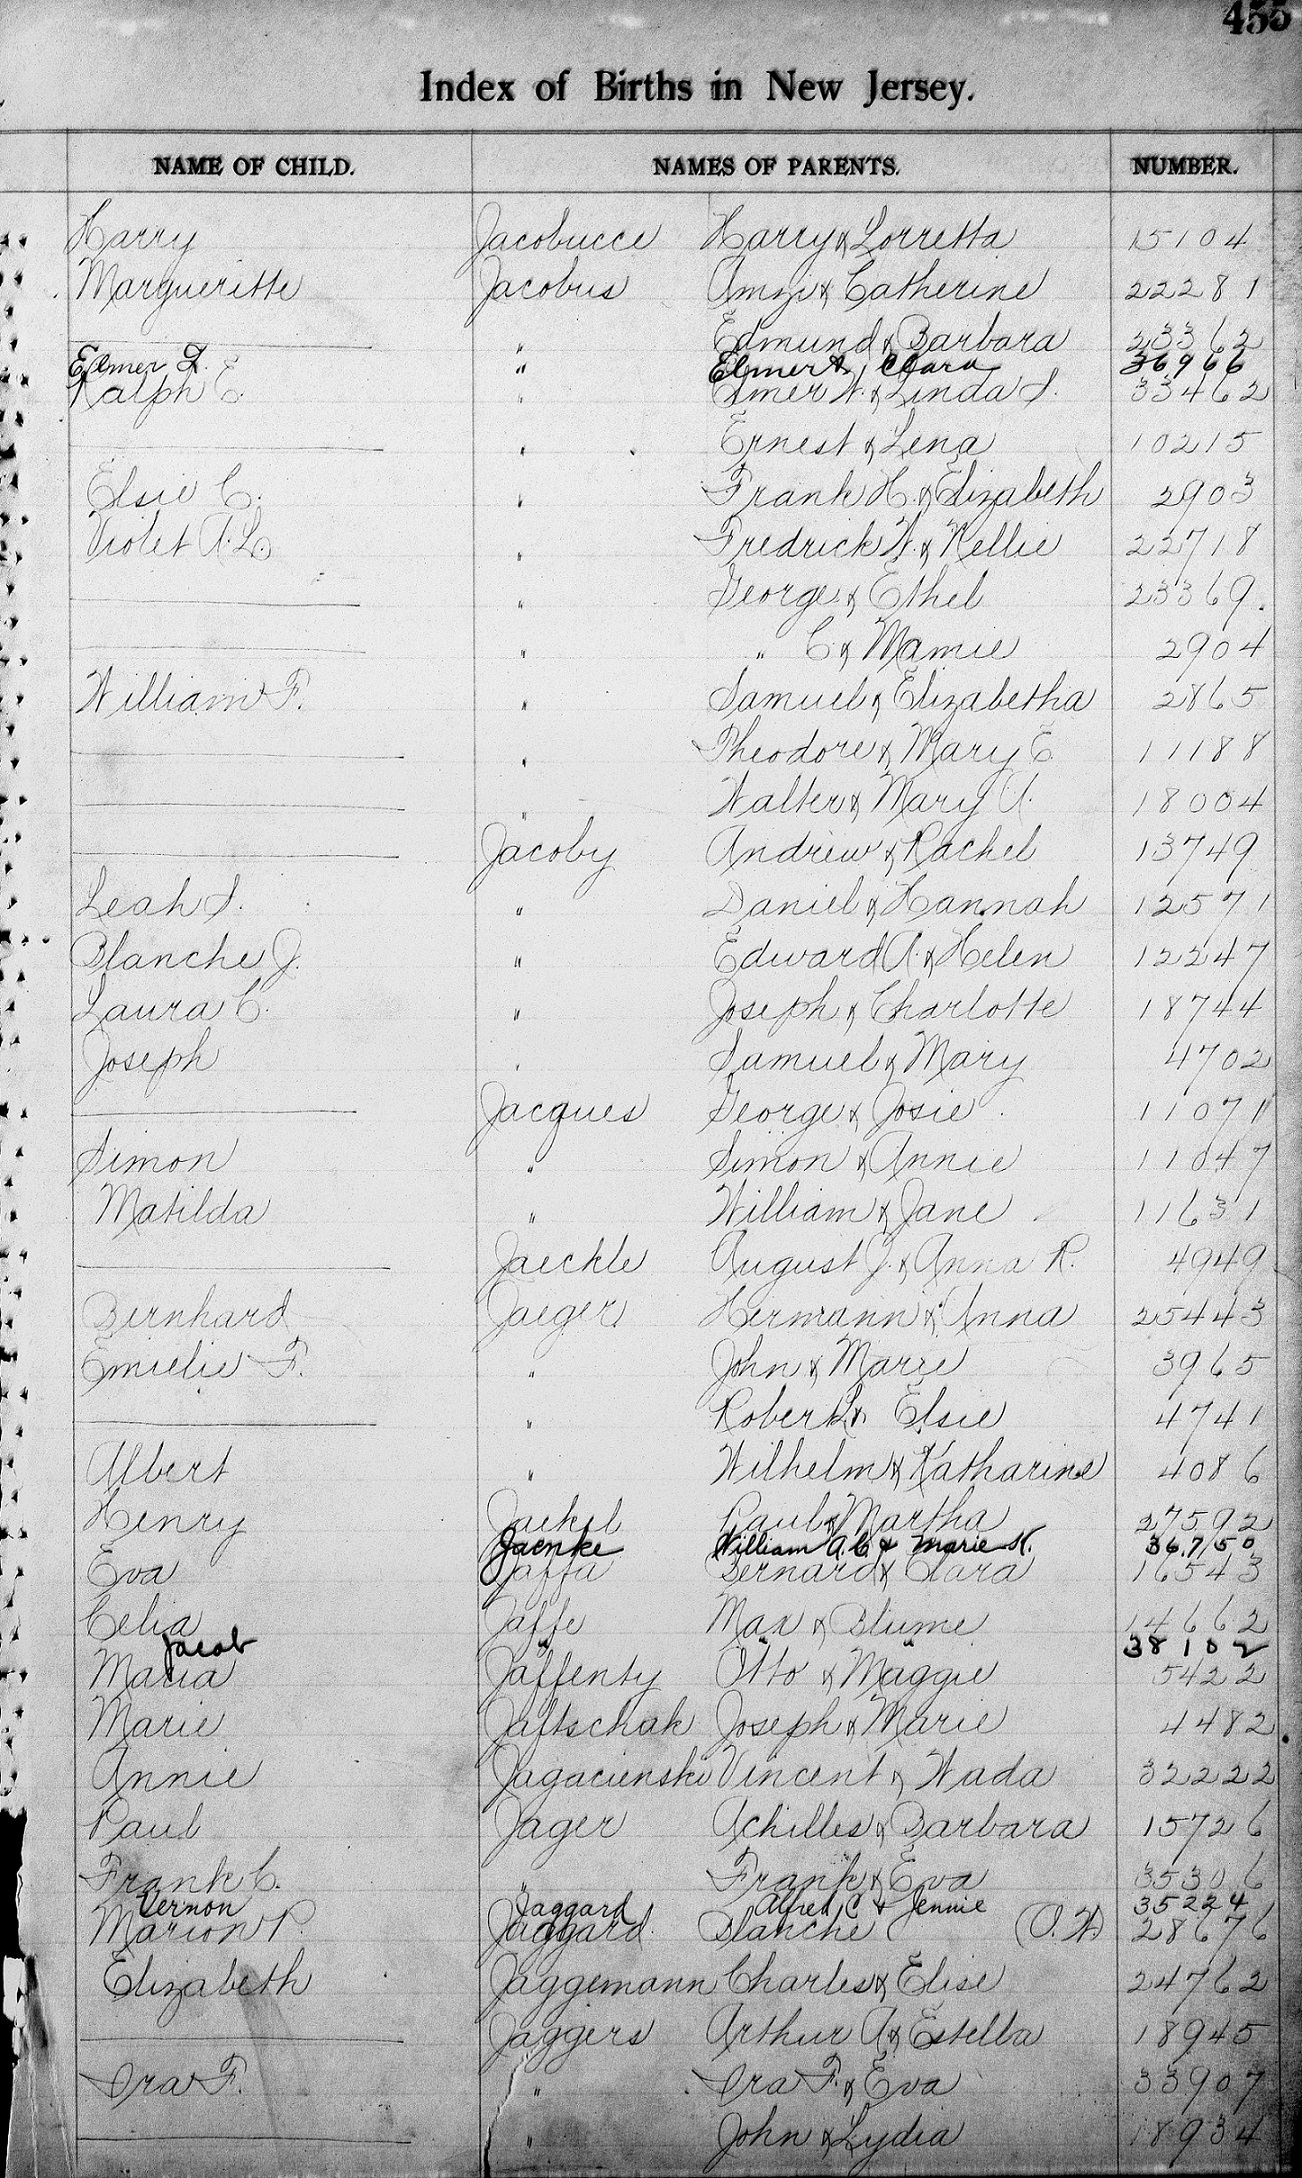 455
Index of Births in New Jersey.
NAME OF CHILD. NAMES OF PARENTS. NUMBER.
Harry Jacobucce Harry & Lorretta 15104
Margueritte Jacobus Amzi & Catherine 22281
" Edmund & Barbara 23362
Elmer " Elmer & Clara 36966
Ralph E. " Elmer W. & Linda S. 33462
" Ernest & Lena 10215
Elsie C. " Frank H. & Elizabeth 2903
Violet A. L. " Fredrick W. & Nellie 22718
" George & Ethel 23369.
" " C & Mamie 2904
William F. " Samuel & Elizabetha 2865
" Theodore & Mary E 11188
" Walter & Mary A. 18004
Jacoby Andrew & Rachel 13749
Leah S. " Daniel & Hannah 12571
Blanche J. " Edward A. & Helen 12247
Laura C. " Joseph & Charlotte 18744
Joseph " Samuel & Mary 4702
Jacques George & Josie 11071
Simon " Simon & Annie 11047
Matilda " William & Jane 11631
Jaeckle August J. & Anna R. 4949
Bernhard Jaeger Hermann & Anna 25443
Emielie F. " John & Marie 3965
" Robert L. & Elsie 4741
Albert " Wilhelm & Katharine 4086
Henry Jaekel Paul & Martha 27592
Jaenke William A. C. & Marie K. 36750
Eva Jaffa Bernard & Clara 16543
Celia Jaffe Max & Blume 14662
Jacob " " " 38102
Maria Jaffenty Otto & Maggie 5422
Marie Jaftschak Joseph & Marie 4482
Annie Jagacienski Vincent & Wada 32222
Paul Jager Achilles & Barbara 15726
Frank C. " Frank & Eva 35306
Vernon Jaggard Alfred C & Jennie 35224
Marion P. Jaggard Blanche (O.W) 28676
Elizabeth Jaggemann Charles & Elise 24762
Jaggers Arthur A & Estella 18945
Ira F. " Ira F. & Eva 33907
" John & Lydia 18934